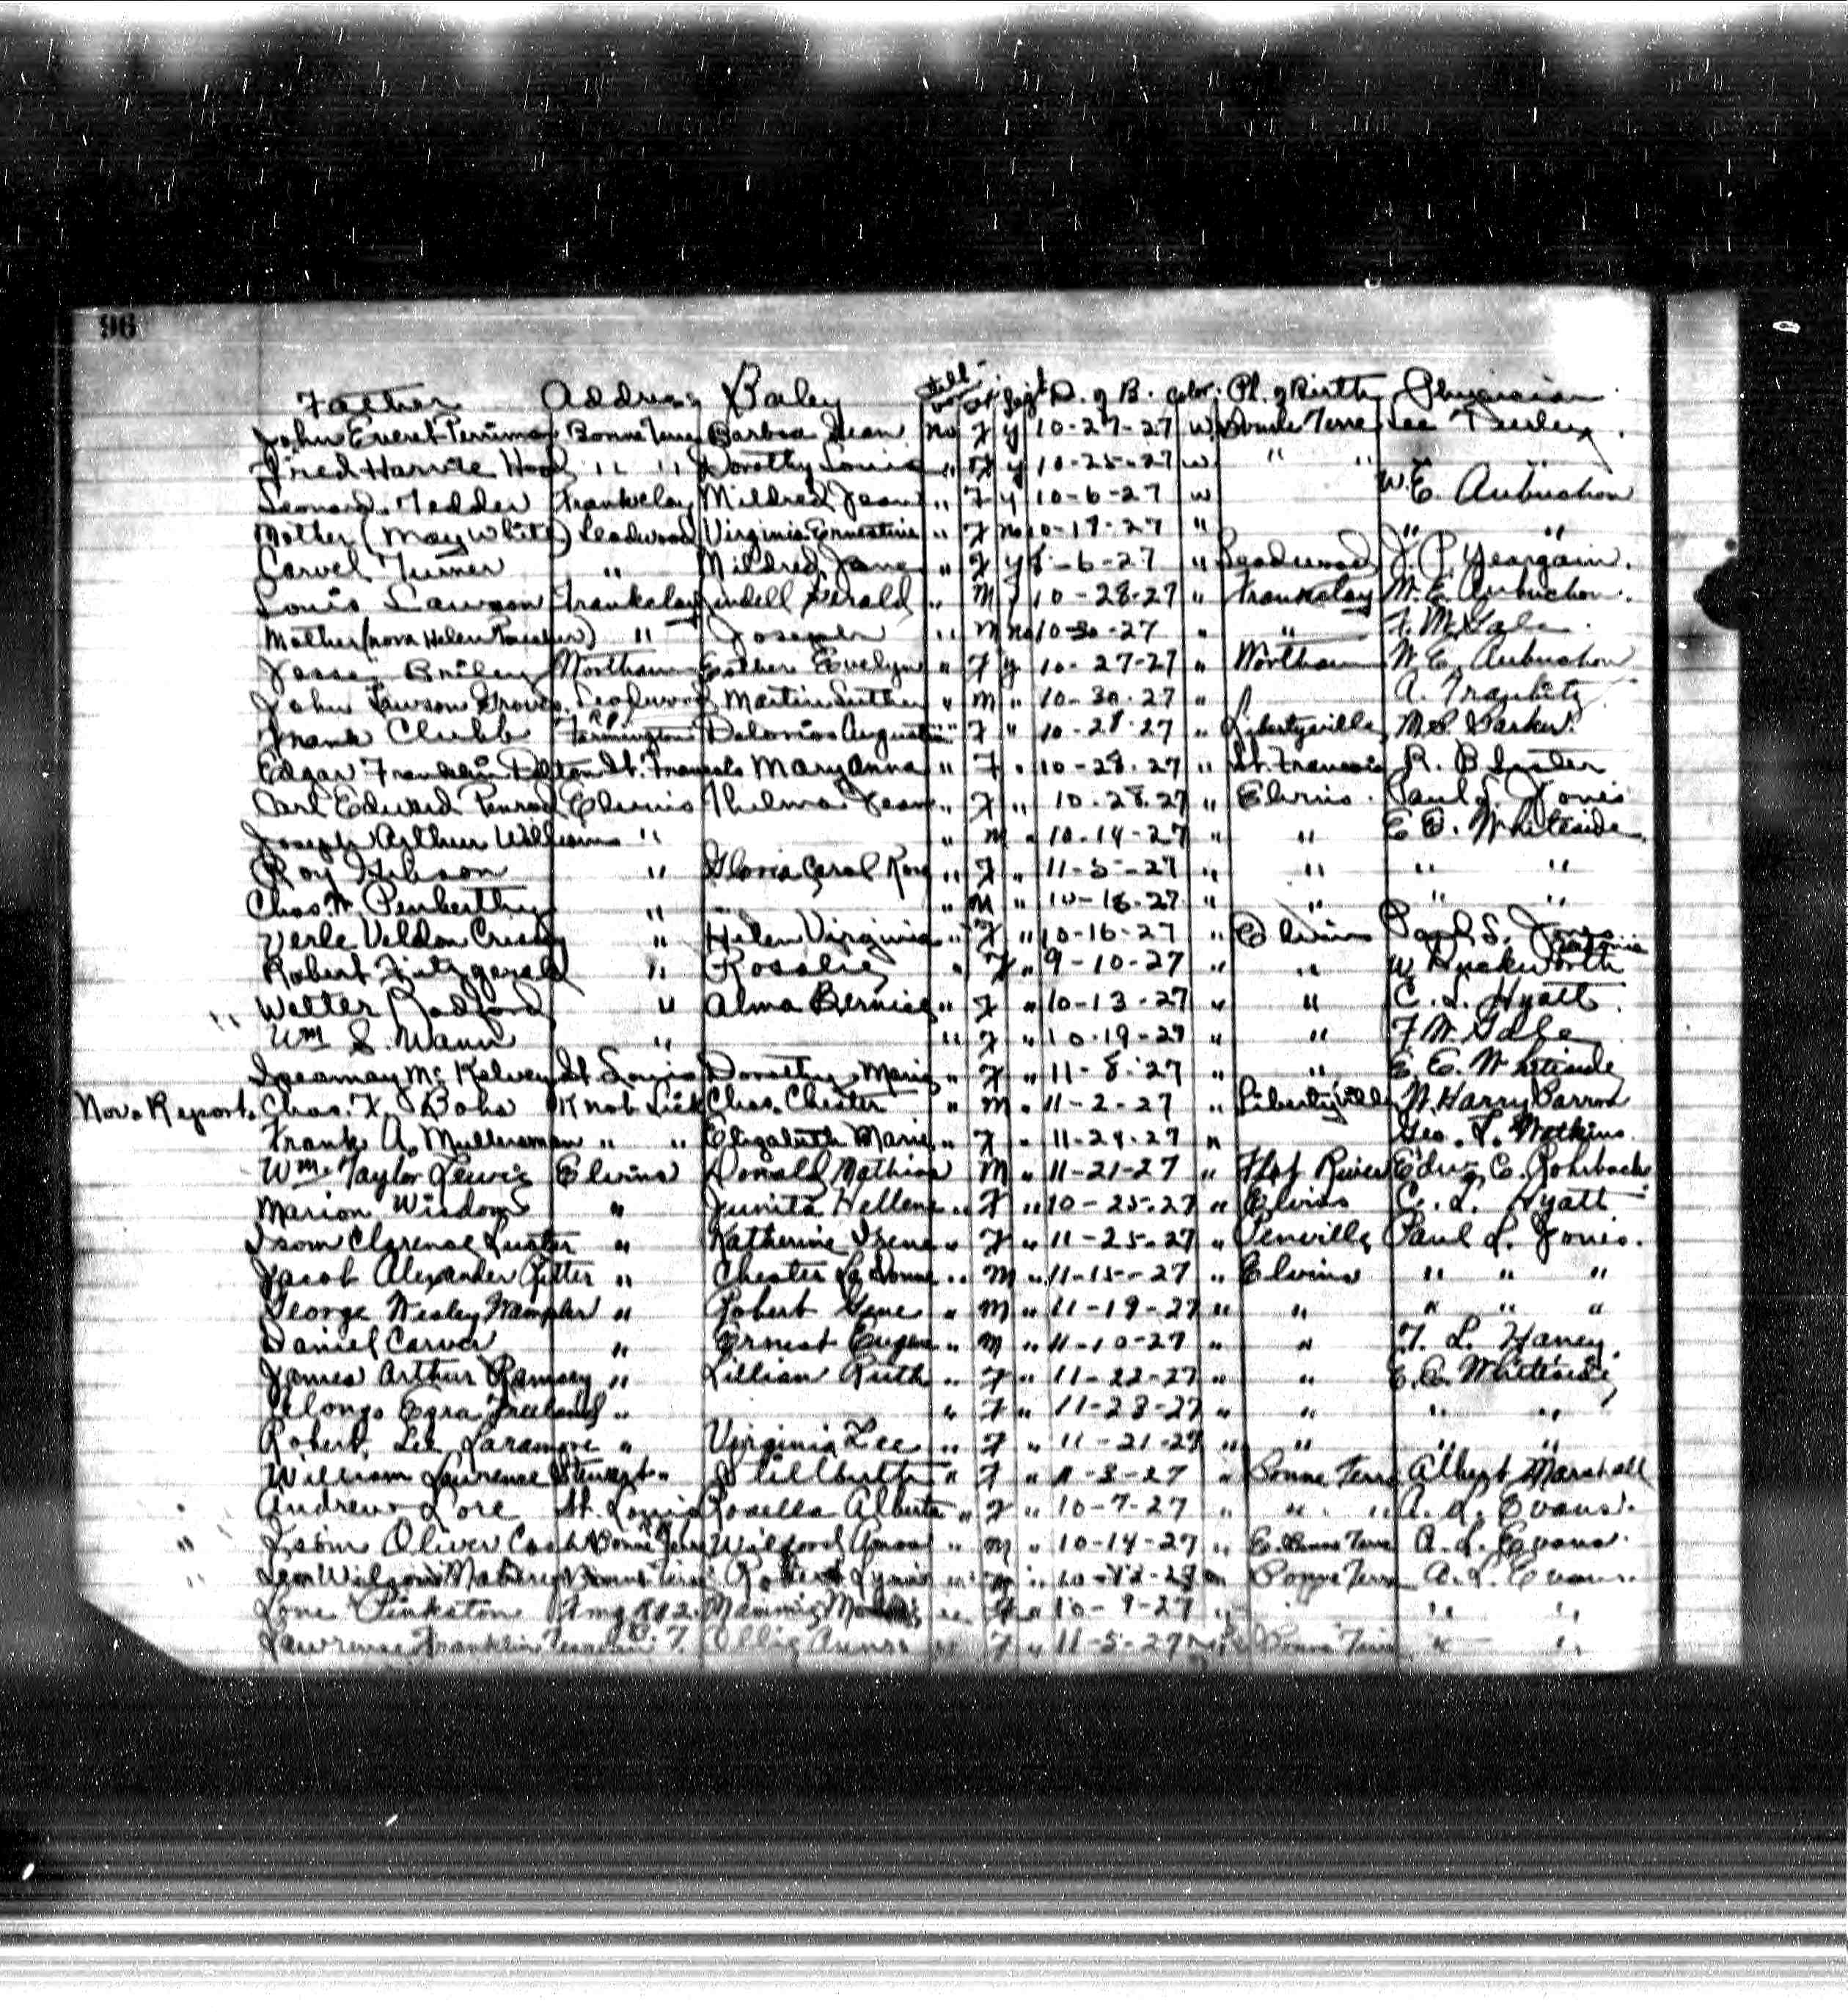 96
Father Address Baby Still Sex Legit D. of B. Color Pl. of Birth Physician
John Everet Perriman Bonne Terre Barbra Jean no F y 10-27-27 W Bonne Terre Lee Turley
Fred Harvie Hood " " Dorothy Louise " F y 10-25-27 w " " "
Leonard Tedder Frankclay Mildred Jean " F y 10-6-27 w W.E. Aubuchon
Mother (May White) Leadwood Virginia Ernestine " F no 10-19-27 " " "
Carvel Turner " Mildred Jane " F y -6-27 " Leadwood J. P. Yeargain.
Louis Lawson Frankclay Gerald " M y 10-28-27 " Frankclay W.E. Aubuchon.
Mother (nora Helen ) " Joseph " M no 10-30-27 " " F. M. Gale
Jesse Briley Wortham Esther Evelyn " F y 10-27-27 " Wortham W.E. Aubuchon
John Lawson Leadwood Martin Luther " M " 10-30-27 " A.
Frank Clubb Farmington Augustine " F " 10-28-27 " Libertyville M.S. Barker.
Edgar Franklin St. Francois Mary Anna " F " 10-28-27 " St. Francois R. B.
Carl Edward Penrod Elvins Thelma Jean " F " 10-28-27 " Elvins Paul L. Jones
Joseph Arthur Williams " " M " 10-14-27 " " E E. Whiteside
Roy Gibson " Gloria Carol Rose " F " 11-5-27 " " " "
Chas. W. Penberthy " " M " 10-18-27 " " " "
Verle Veldon " Helen Virginia " F " 10-16-27 " Elvins Paul L. Jones
Robert Fitzgerald " Rosalie " F " 9-10-27 " " W Duckworth
Walter Radford " Alma Bernice " F " 10-13-27 " " C. L. Hyatt
Wm S. Mann " " F " 10-19-27 " " F M. Gale
McKelvey St. Louis Dorothy Marie " F " 11-8-27 " " E. E. Whiteside
Nov. Report. Chas. Knob Lick Chas. Chester " M " 11-2-27 " Libertyville W. Harry Barron
Frank A. Mullersman " " Elizabeth Marie " F " 11-29-27 " Geo. L. Watkins
Wm. Taylor Lewis Elvins Donald Mathias M " 11-21-27 " Flat River Edw. C. Rohrbach
Marion Wisdom " Junita Hellene " F " 10-25-27 " Elvins C. L. Hyatt
Isom Clarence Luster " Katherine Irene " F " 11-25-27 " Paul L. Jones.
Jacob Alexander Ritter " Chester La Vonne " M " 11-15-27 " Elvins " " "
George Wesley Wampler " Robert Gene " M " 11-19-27 " " " " "
Daniel Carver " Ernest Eugene " M " 11-10-27 " " T. L. Haney
James Arthur Ramsey " Lillian Ruth " F " 11-22-27 " " E. E. Whiteside
Alonzo Ezra Freeland " " F " 11-23-27 " " " "
Robert Lee Laramore " Virginia Lee " F " 11-21-27 " " " "
William Lawrence Stewart " Stillbirth " F " 11-3-27 " Bonne Terre Albert Marshall
Andrew Lore St. Louis Rosella Alberta " F " 10-7-27 " " " A. L. Evans.
" Isom Oliver Cash Bonne Terre Wilford Amon " M " 10-14-27 " Bonne Terre A. L. Evans.
" Leon Wilson Bonne Terre Robert " M " " Bonne Terre A. L. Evans.
Lone Pinkston Mammie " F " 10-9-27 " " "
Lawrence Franklin Ollie " F " 11-5-27 Bonne Terre " "